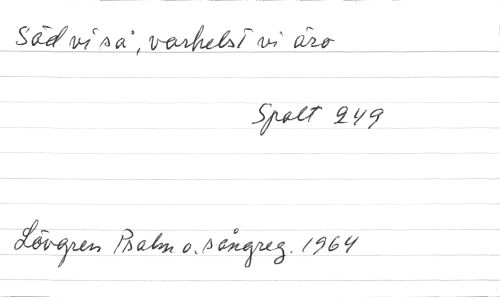 Säd vi så, varhelst vi äro
Spalt 249
Lövgren Psalm o. sångreg. 1964